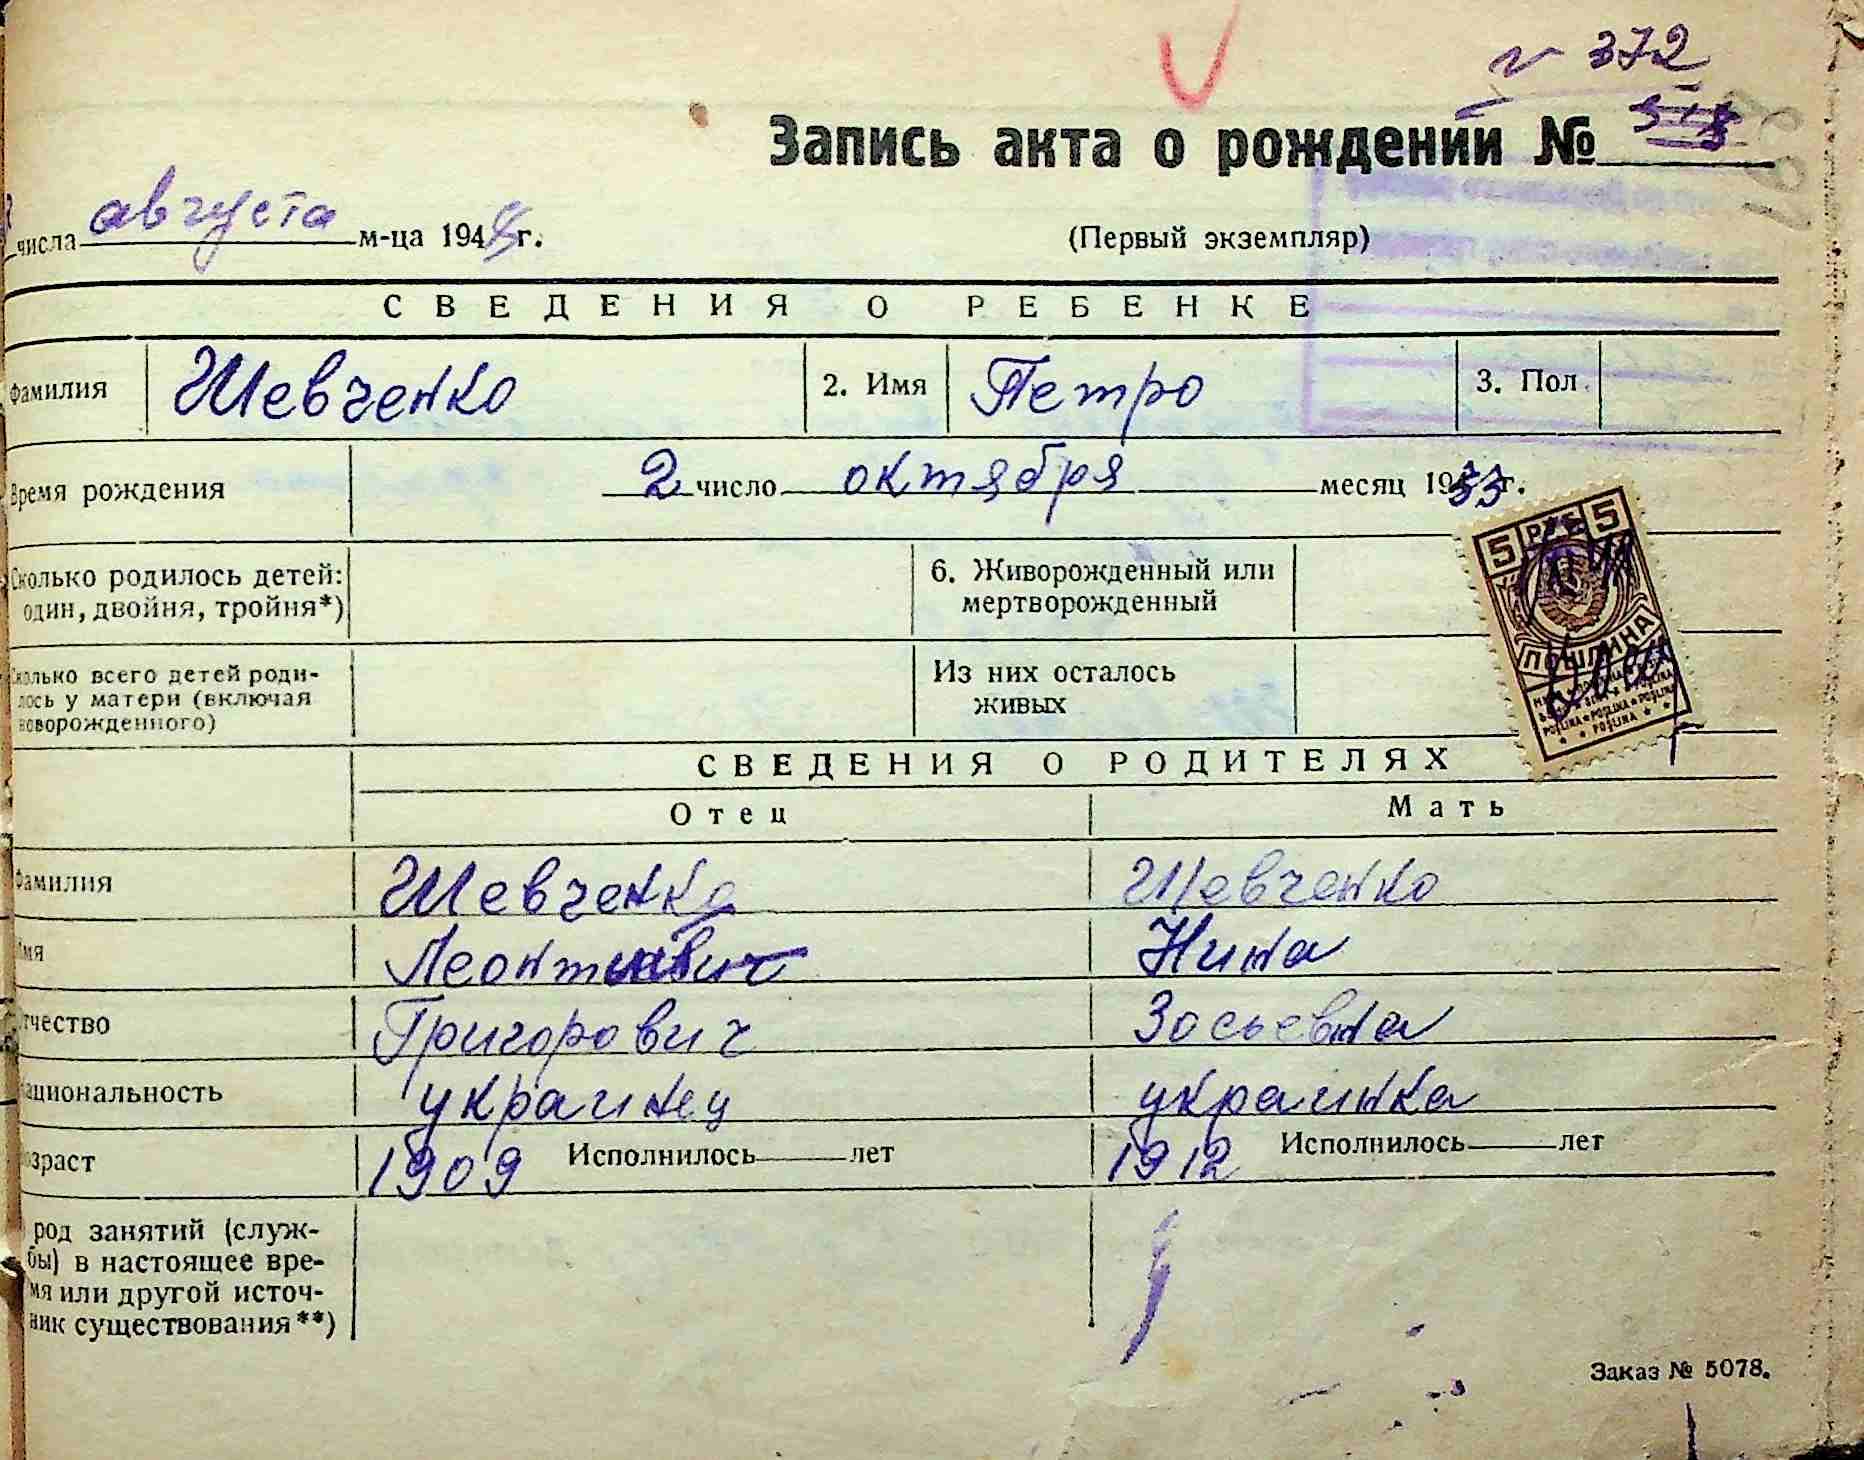 № 372
Запись акта о рождении №
числа августа м-ца 194 г.
(Первый экземпляр)
СВЕДЕНИЯ О РЕБЕНКЕ
Фамилия Шевченко 2. Имя Петро 3. Пол
Время рождения 2 число октября месяц 1933 г.
Сколько родилось детей: один, двойня, тройня*)
6. Живорожденный или мертворожденный
Сколько всего детей роди-
лось у матери (включая
новорожденного)
Из них осталось
живых
5 РУБ 5
ПОШЛИНА
СВЕДЕНИЯ О РОДИТЕЛЯХ
Отец Мать
Фамилия Шевченко Шевченко
Имя Нина
Отчество Григорович Зосьевна
Национальность украинец украинка
Возраст 1909 Исполнилось лет 1912 Исполнилось лет
род занятий (служ-
бы) в настоящее вре-
мя или другой источ-
ник существования**)
Заказ № 5078.